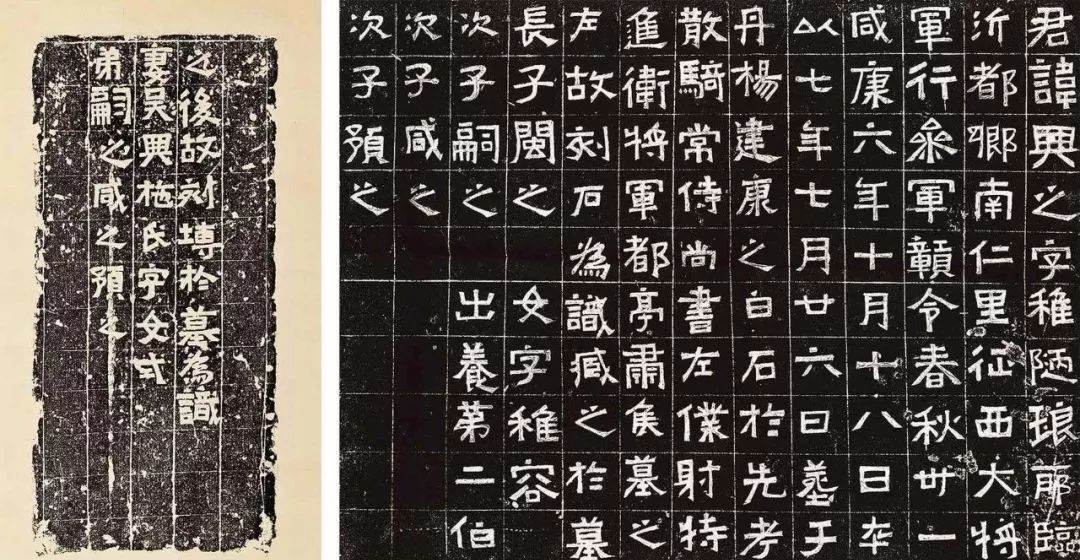 君諱興之字稚陋琅耶臨
沂都鄉南仁里征西大將
軍行參軍贛令春秋卌一
咸康六年十月十八日卒
以七年七月廿六日塟于
丹楊建康之白石於先考
散騎常侍尚書左僕射特
進衛將軍都亭肅侯墓之
左故刻石為識臧之於墓
長子閩之 女字稚容
次子嗣之 出養第二伯
次子咸之
次子預之
之後故刻塼於墓為識
妻吳興施氏字女式
弟嗣之咸之預之